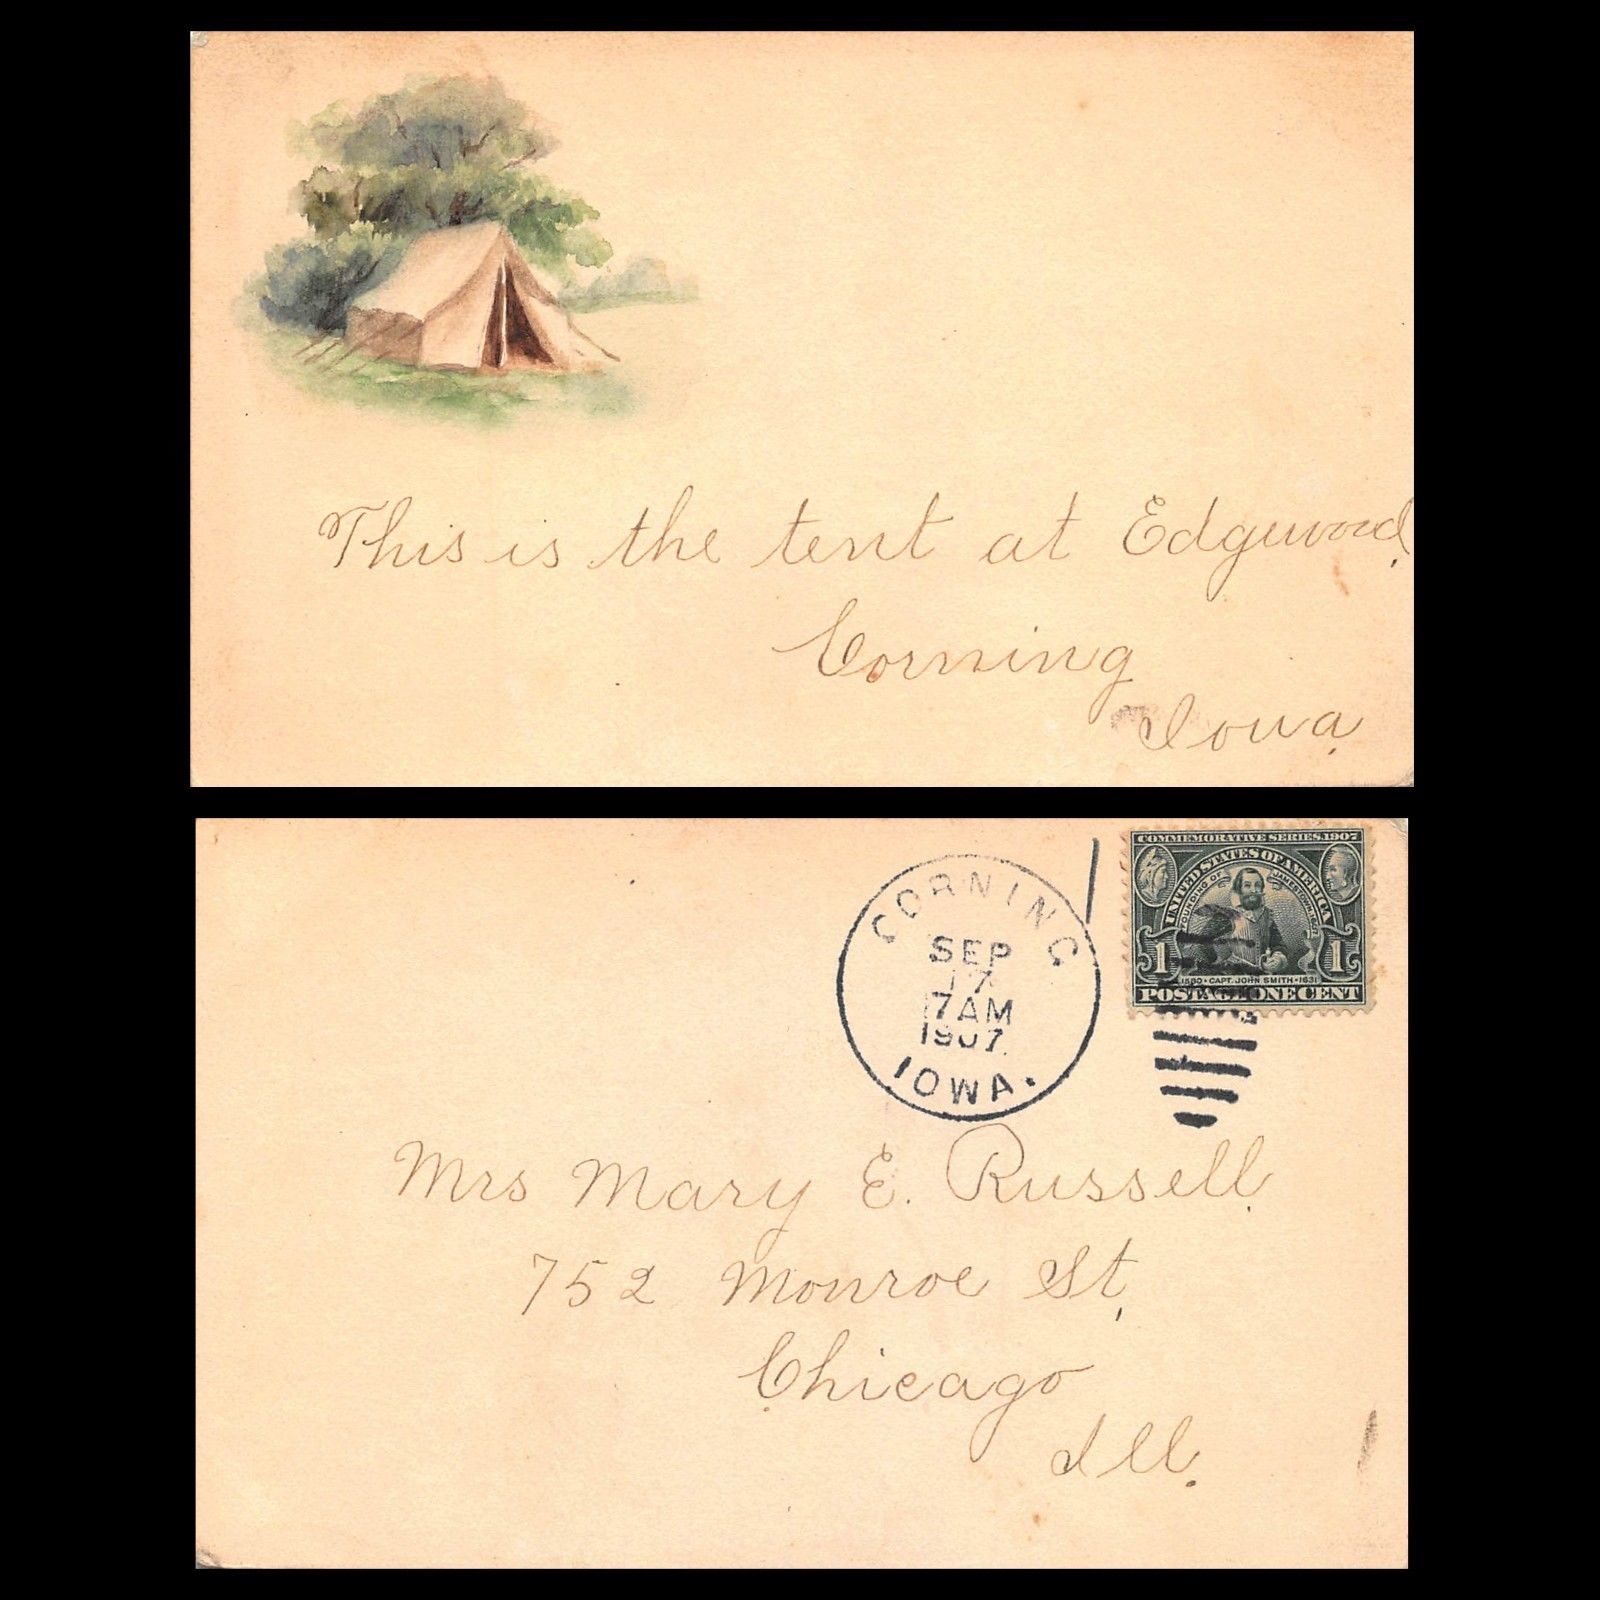 This is the tent at Edgewood,
Corning
Iowa.
CORNING
SEP
17
7 AM
1907.
IOWA.
COMMEMORATIVE SERIES 1907
UNITED STATES OF AMERICA
FOUNDING OF JAMESTOWN 1607
1 1
1580 • CAPT. JOHN SMITH • 1631
POSTAGE ONE CENT
Mrs Mary E. Russell.
752 Monroe St,
Chicago
Ill.